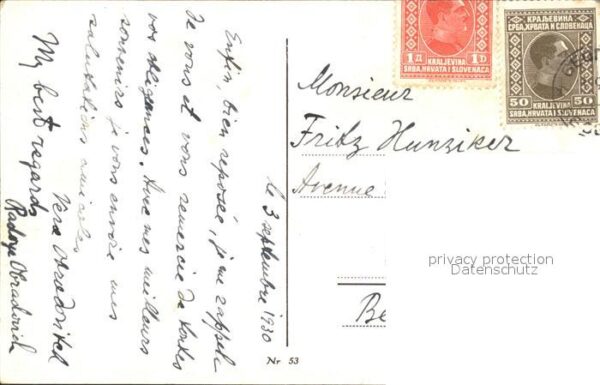 le 3 septembre 1930
Enfin, bien reposée, je me rappele
de vous et vous remercie de toutes
vos obligeances. Avec mes meilleurs
souvenirs je vous envoie mes
salutations amicales
Vera Obradovitch
My best regards
Radoye Obradovich
Nr 53
1 Д 1 D
KRALJEVINA
SRBA, HRVATA I SLOVENACA
КРАЉЕВИНА
СРБА, ХРВАТА И СЛОВЕНАЦА
50 50
KRALJEVINA
SRBA, HRVATA I SLOVENACA
Monsieur
Fritz Hunziker
Avenue
Be
privacy protection
Datenschutz